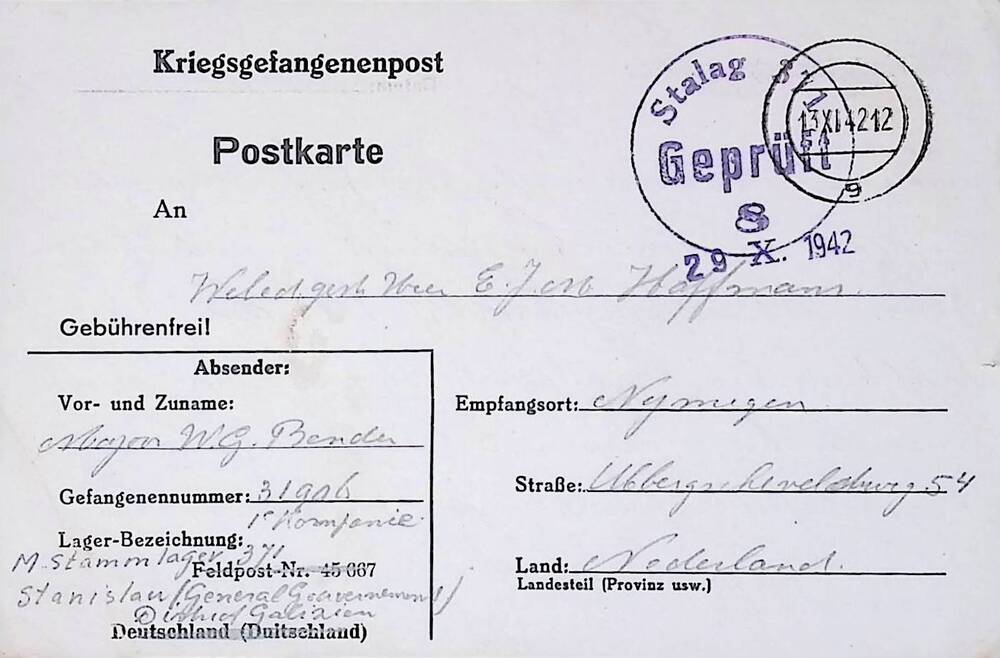 Kriegsgefangenenpost
Postkarte
Stalag 371
Geprüft
8
29 X. 1942
13.XI.42 12
g
An
Weledgeb Heer E. J. Hoffmann.
Gebührenfrei!
Absender:
Vor- und Zuname:
Majoor W G. Bender
Gefangenennummer: 31
1e Kompanie
Lager-Bezeichnung:
M-Stammlager 371
Feldpost-Nr. 45 667
Stanislau (General Gouvernement)
District Galizien
Deutschland (Duitschland)
Empfangsort: Nymegen
Straße: Ubbergscheveldweg 54
Land: Nederland.
Landesteil (Provinz usw.)